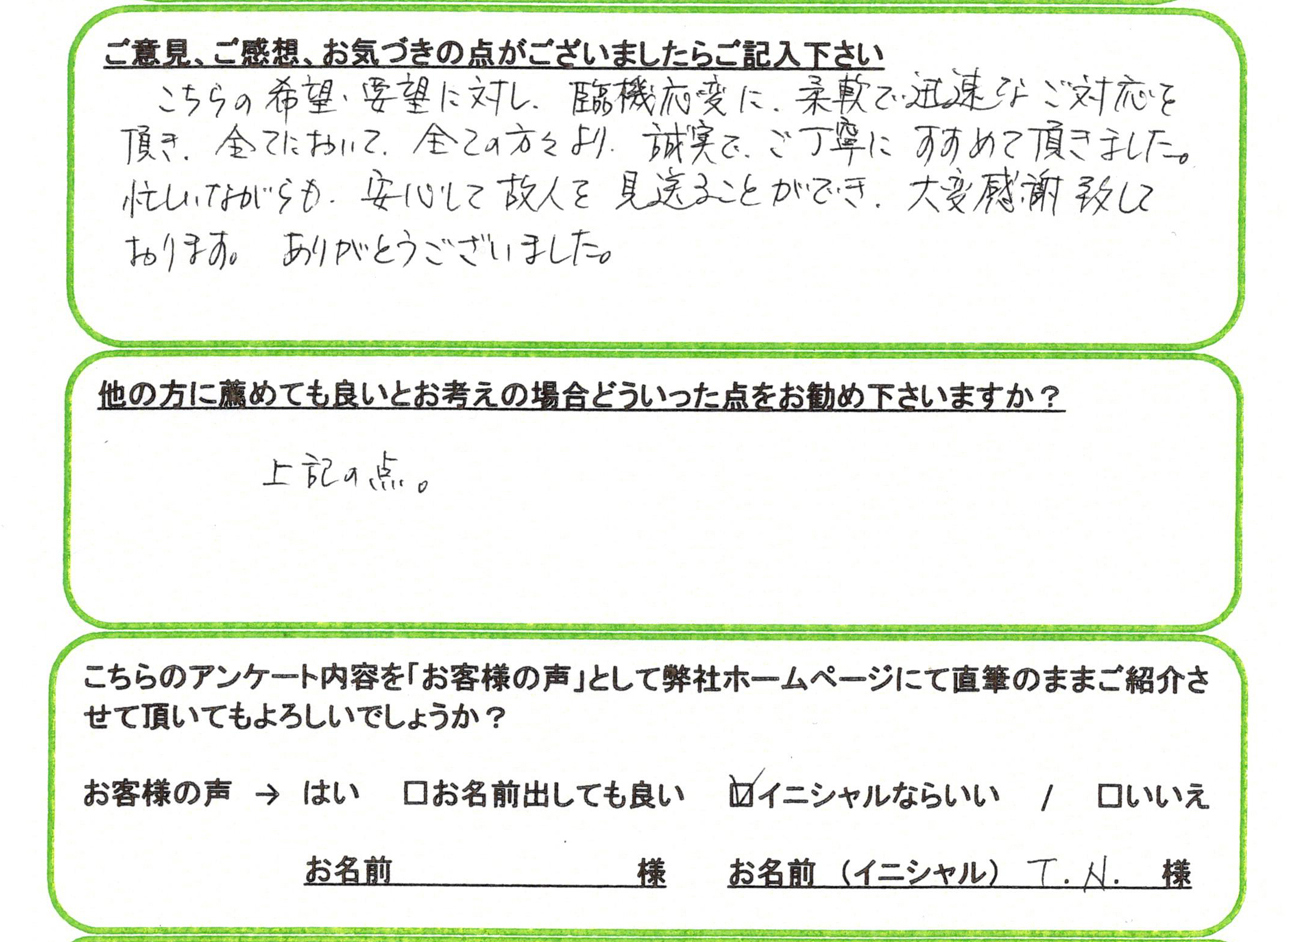 ご意見、ご感想、お気づきの点がございましたらご記入下さい
こちらの希望・要望に対し、臨機応変に、柔軟で迅速なご対応を
頂き、全てにおいて、全ての方々より、誠実で、ご丁寧にすすめて頂きました。
忙しいながらも、安心して故人を見送ることができ、大変感謝致して
おります。ありがとうございました。
他の方に薦めても良いとお考えの場合どういった点をお勧め下さいますか？
上記の点。
こちらのアンケート内容を「お客様の声」として弊社ホームページにて直筆のままご紹介さ
せて頂いてもよろしいでしょうか？
お客様の声 → はい □お名前出しても良い ☑イニシャルならいい / □いいえ
お名前 様 お名前（イニシャル） T.N. 様